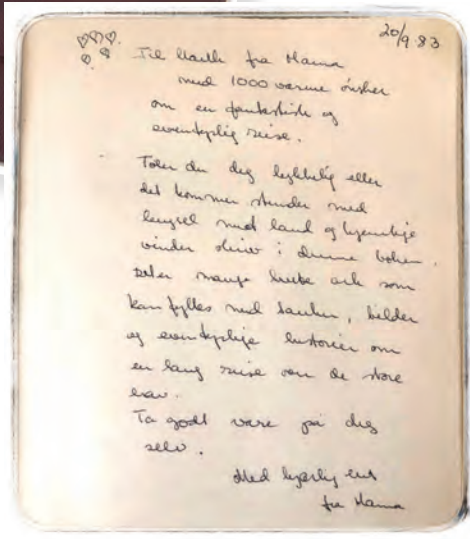 20/9 83
Til Marthe fra Mama
med 1000 varme ønsker
om en fantastisk og
eventyrlig reise.
Føler du deg lykkelig eller
det kommer stunder med
lengsel mot land og hjemlige
vinder skriv i denne boken.
Det er mange hvite ark som
kan fylles med tanker, bilder
og eventyrlige historier om
en lang reise over de store
hav.
Ta godt vare på deg
selv.
Med kjærlig
fra Mama